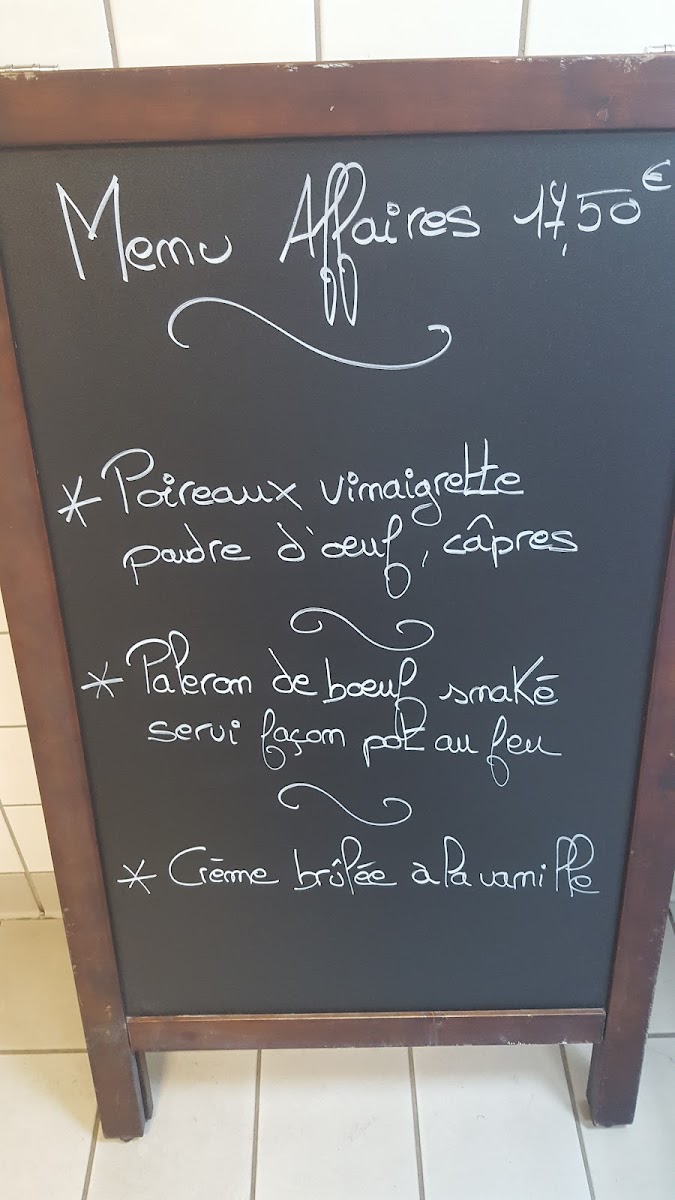 Menu Affaires 17,50€
* Poireaux vinaigrette
poudre d'œuf, câpres
* Paleron de bœuf smoké
servi façon pot au feu
* Crème brûlée à la vanille